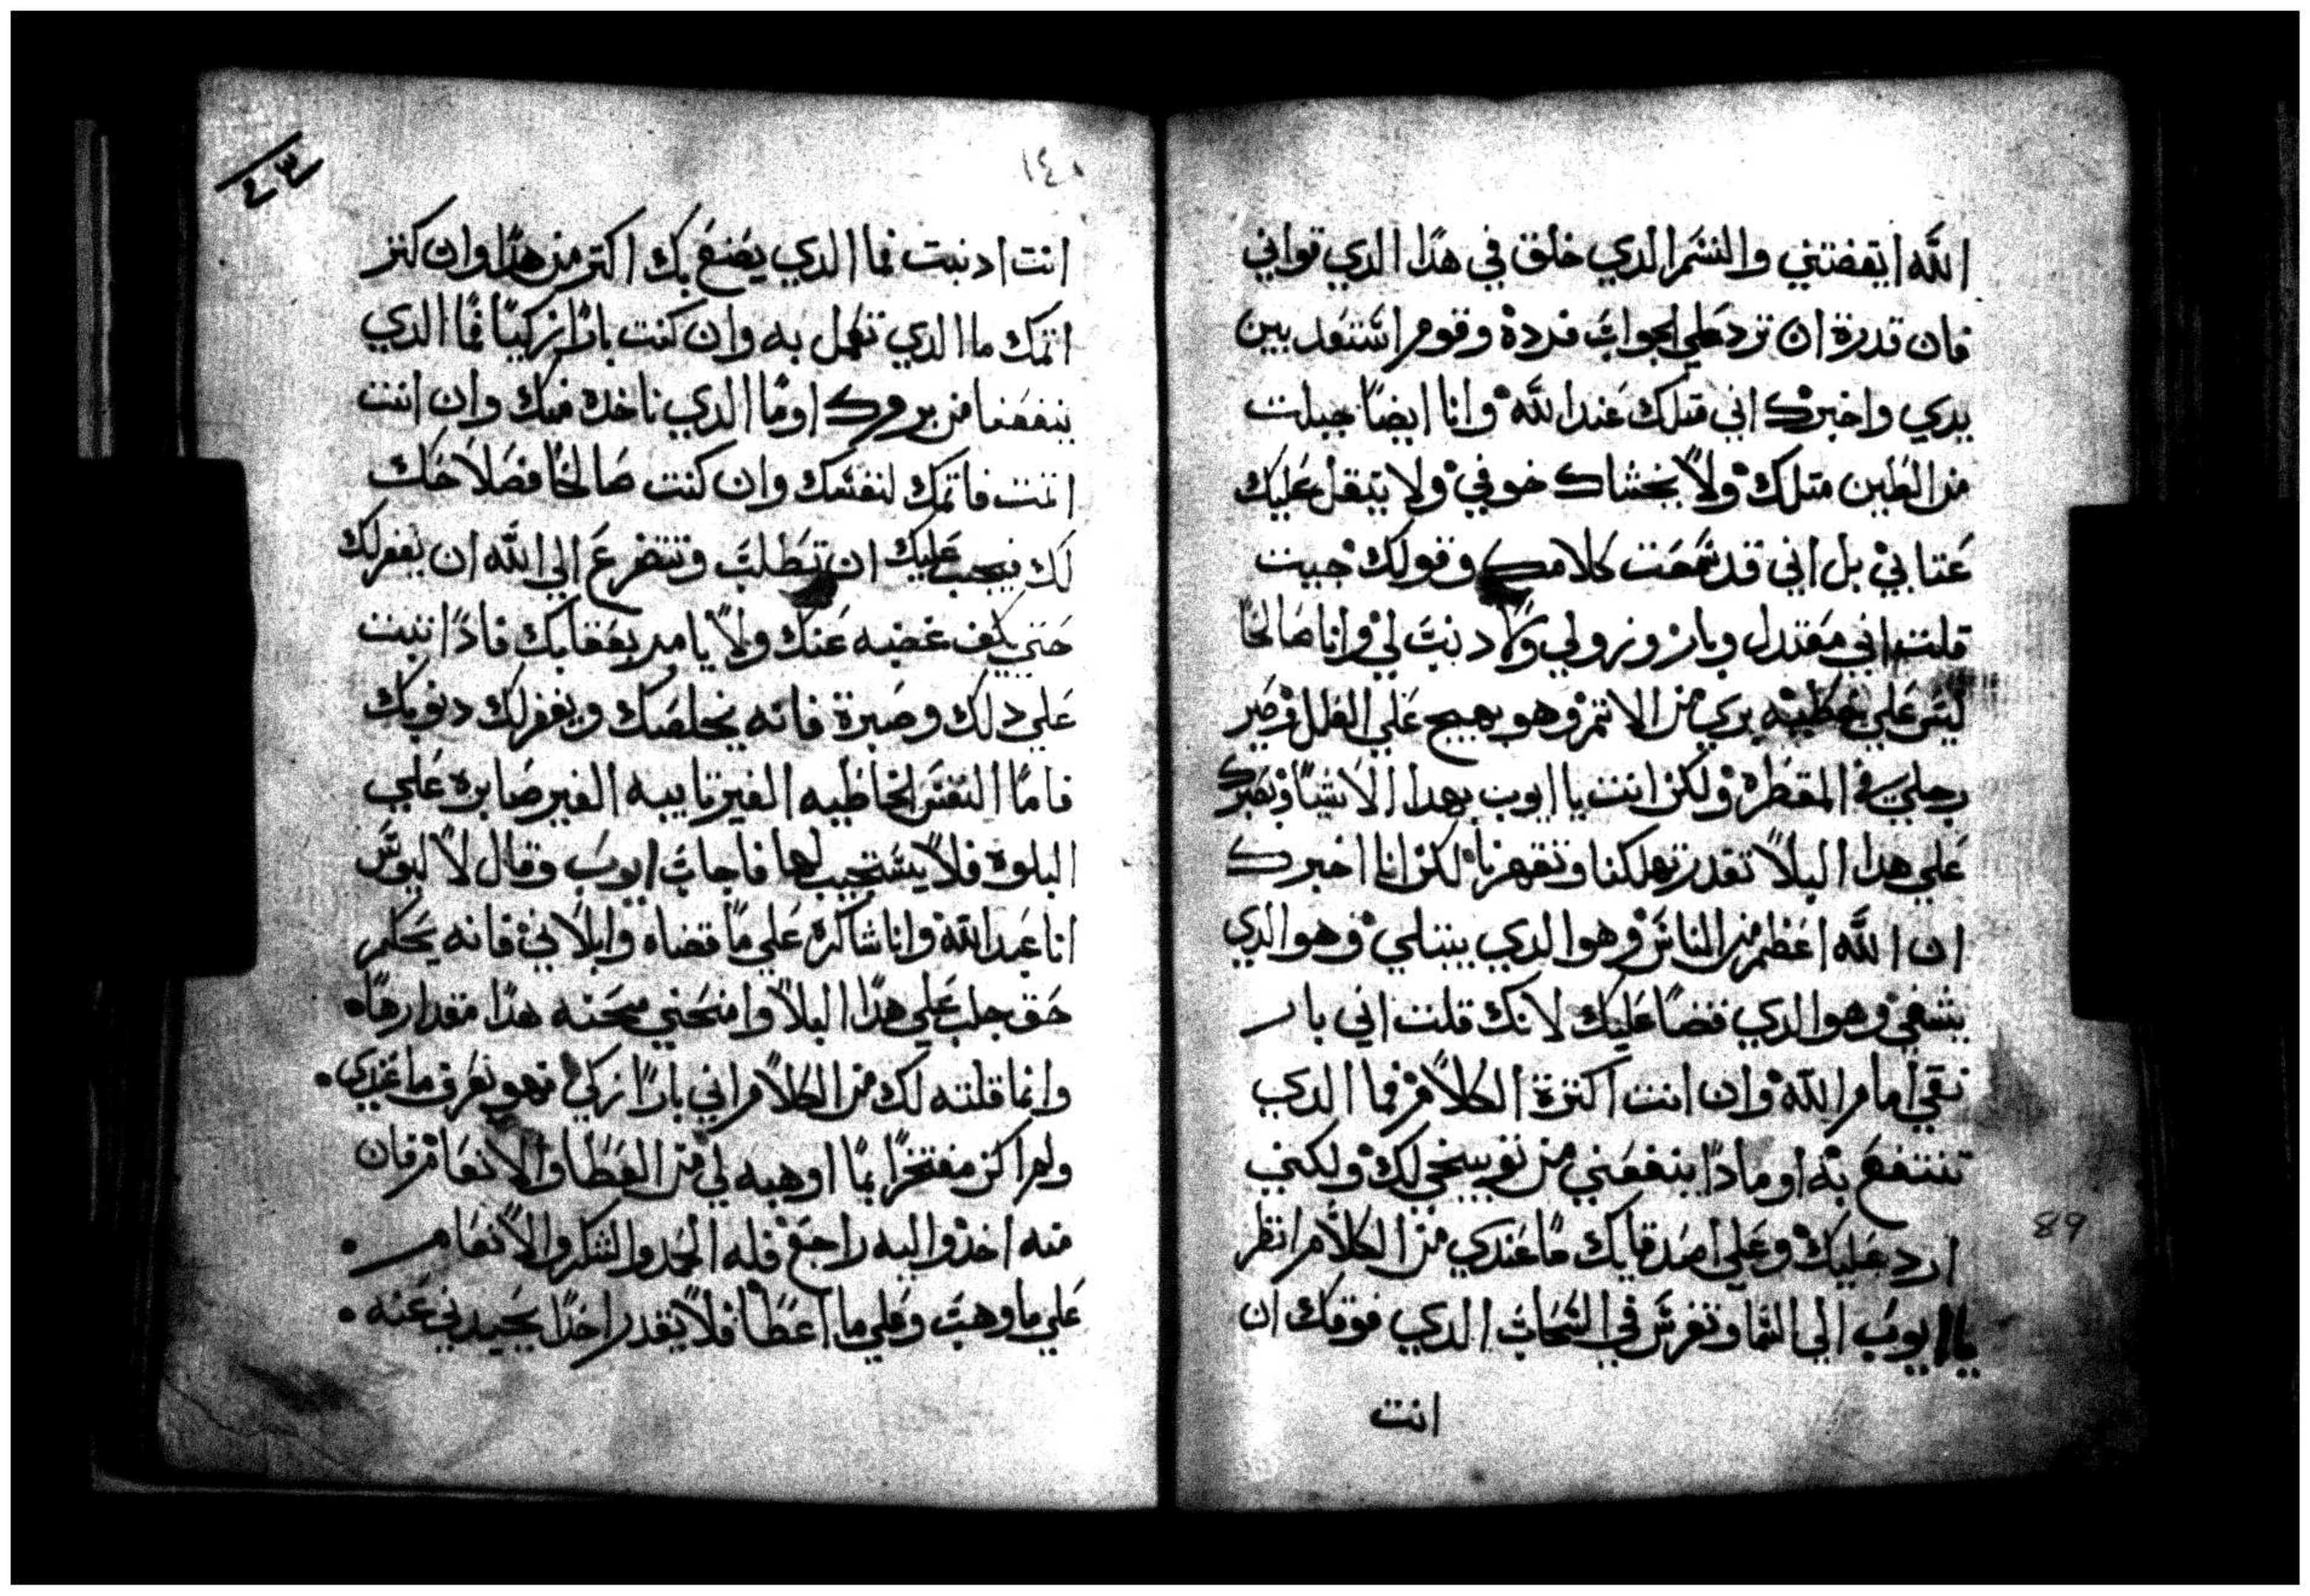 الله ايقضتني والنسم الدي خلق في هدا الدي قواني
فان قدرة ان ترد علي الجواب فردة وقوم استعد بين
يدي واخبرك اني متلك عند الله وانا ايضا جبلت
من الطين متلك ولا يخشاك خوفي ولا يتقل عليك
عتابي بل اني قد سمعت كلامك وقولك حيت
قلت اني معتدل وبار وزولي ولا دنب لي وانا صالحا
ليس علي خطيه بري من الاتم وهو يهيج علي العلل وصير
رجلي في المقطره ولكن انت يا ايوب بهدا الاشيا وتصبرك
علي هدا البلا تقدر تهلكنا وتقهرنا لكن انا اخبرك
ان الله اعظم من الناس وهو الدي يبتلي وهو الدي
يشفي وهو الدي قضا عليك لانك قلت اني بار
نقي امام الله وان انت اكترة الكلام فما الدي
تنتفع به او مادا ينفعني من توبيخي لك ولكني
ارد عليك وعلي اصدقايك ما عندي من الكلام انظر
يا ايوب الي السما وتفرس في السحاب الدي فوقك ان
انت
١٤٠
٤٣
انت ادنبت فما الدي يصنع بك اكتر من هدا وان كتر
اتمك ما الدي تعمل به وان كنت بارا زكيا فما الدي
ينفعنا من برورك او ما الدي ناخده منك وان انت
اتت فاتمك لنفسك وان كنت صالحا فصلاحك
لك فيجب عليك ان تطلب وتتضرع الي الله ان يغفر لك
حتي يكف غضبه عنك ولا يامر بعقابك فادا تبت
علي دلك وصبرة فانه يخلصك ويغفر لك دنوبك
فاما النفس الخاطيه الغير تايبه الغير صابره علي
البلوة فلا يستجيب لها فاجاب ايوب وقال لاليوس
انا عبد الله وانا شاكره علي ما قضاه وابلاني فانه يحكم
حق جلب علي هدا البلا وامنحني محنه هدا مقدارها
وانما قلته لك من الكلام اني بارا زكي فهو يعرف ما عندي
ولم اكن مفتخرا بما اوهبه لي من العطا والانعام فان
منه اخد واليه راجع فله الحمد والشكر والانعام
علي ما وهب وعلي ما اعطا فلا يقدر احدا يحيدني عنه
89